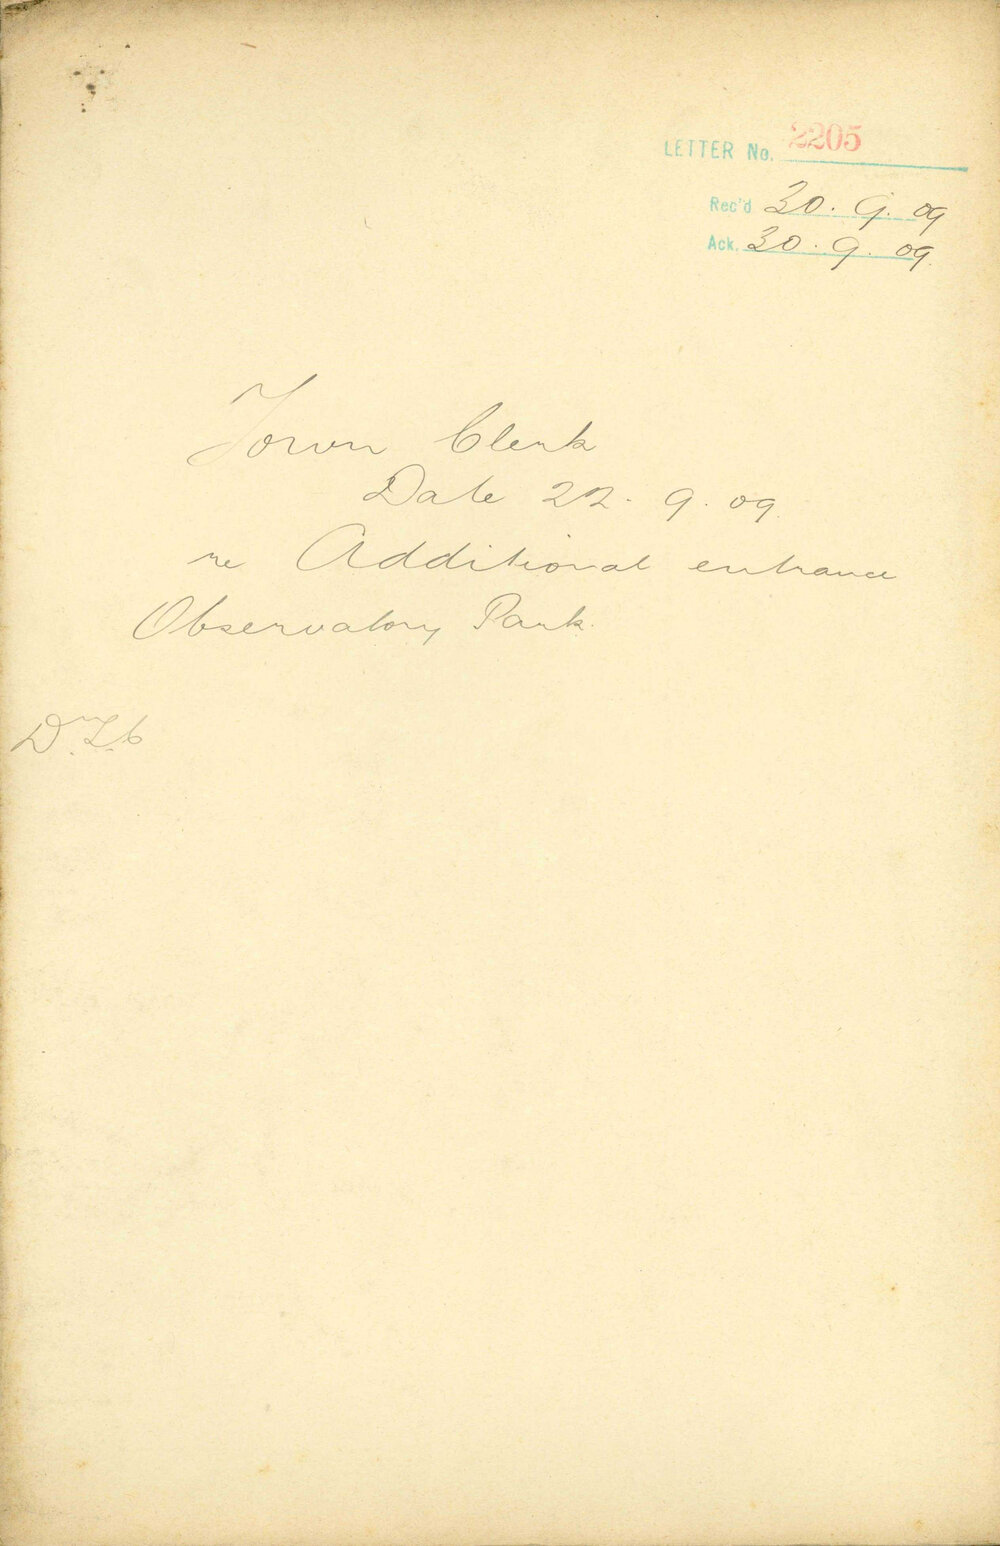 LETTER No. 2205
Rec'd 30. 9. 09
Ack. 30. 9. 09.
Town Clerk
Date 22. 9. 09.
re Additional entrance
Observatory Park.